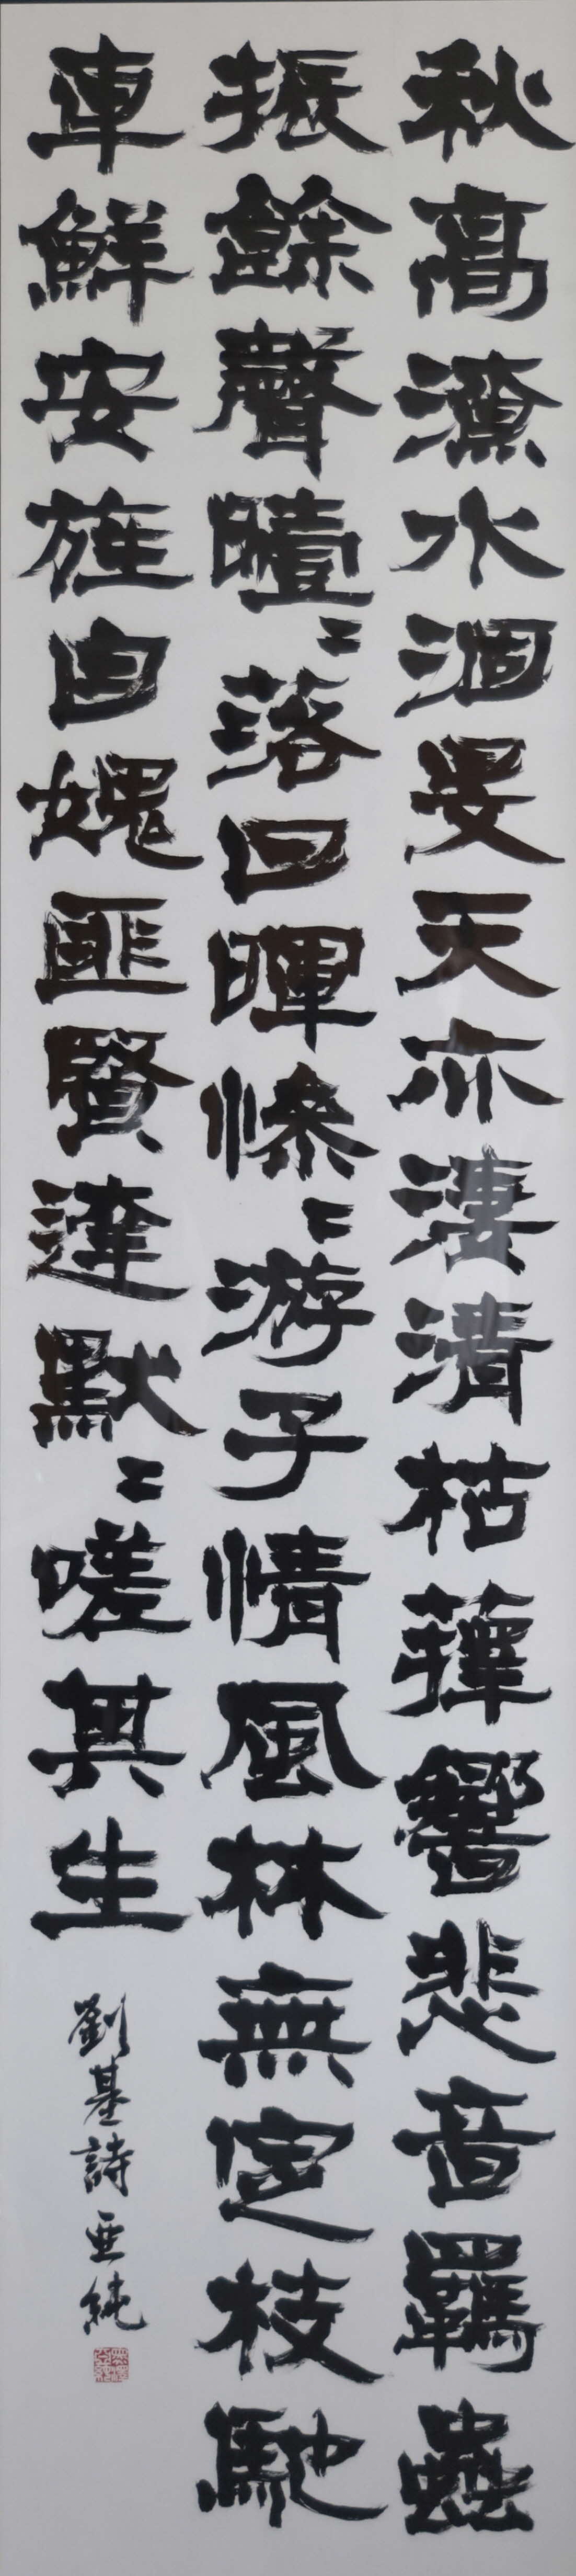 秋高潦水涸旻天亦淒清枯蘀響悲音羈蟲
振餘聲曀〻落日暉慘〻游子情風林無定枝馳
車鮮安旌自媿匪賢達默〻嗟其生
劉基詩 亞純